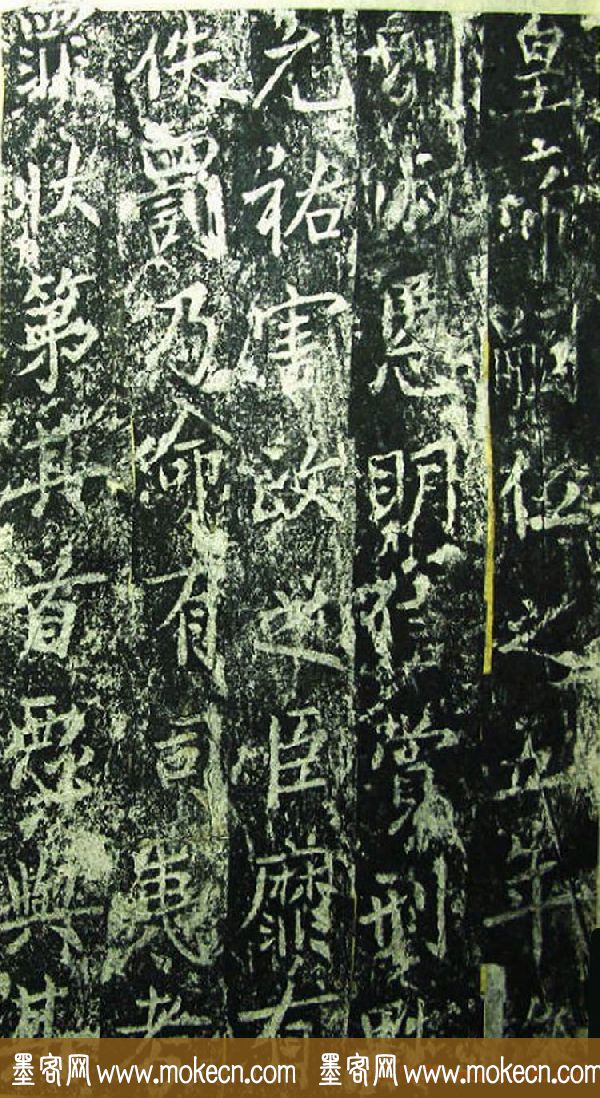 皇帝嗣位之五年
別淑慝明信賞刑黜
元祐害政之臣靡有
佚罰乃命有司夷考
罪狀第其首惡與其
墨客网 www.mokecn.com 墨客网 www.mokecn.com